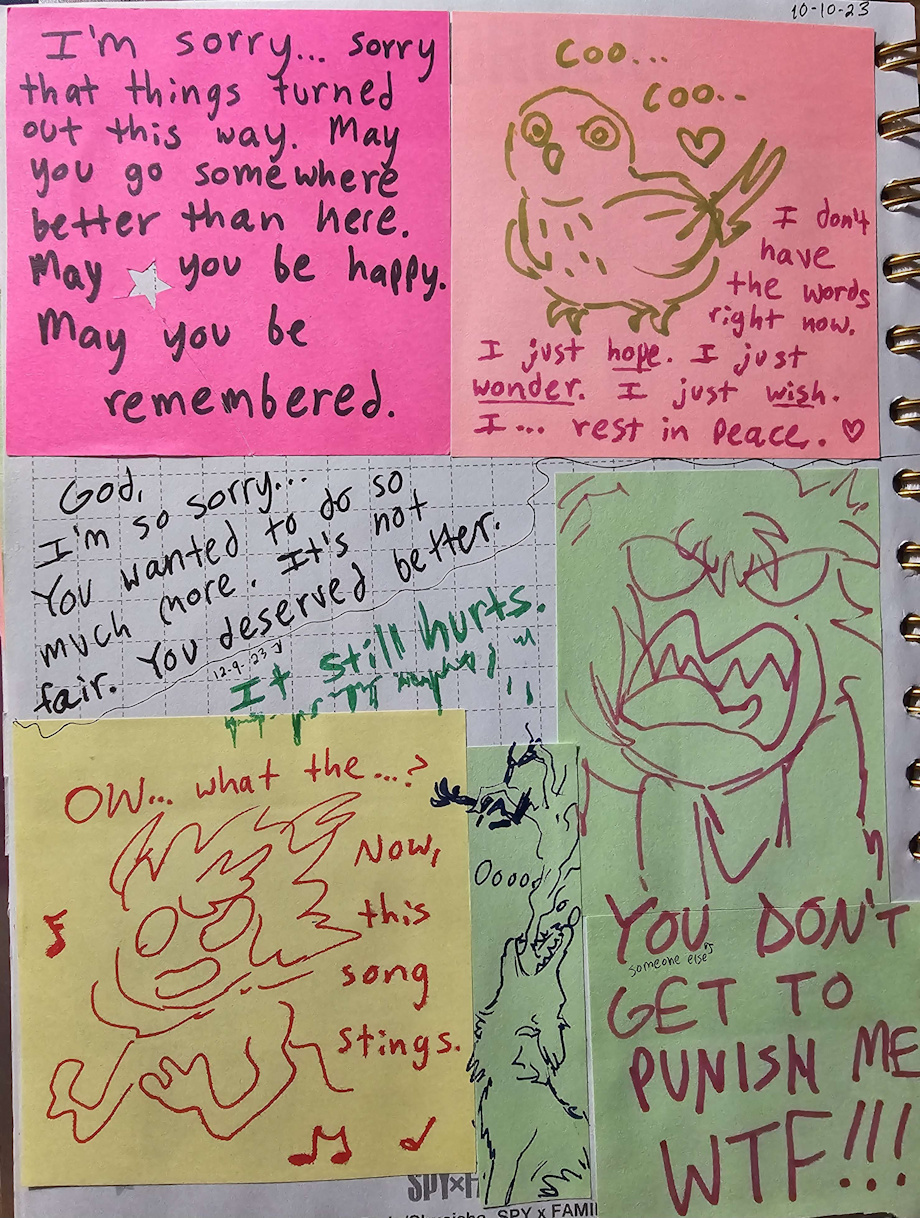 10-10-23
I'm sorry... sorry
that things turned
out this way. May
you go somewhere
better than here.
May you be happy.
May you be
remembered.
Coo...
Coo..
I don't
have
the words
right now.
I just hope. I just
wonder. I just wish.
I... rest in peace. ♡
God,
I'm so sorry...
You wanted to do so
much more. It's not
fair. You deserved better.
12-9-23
It still hurts.
OW... what the...?
Now,
this
song
stings.
YOU DON'T
someone else's
GET TO
PUNISH ME
WTF!!!
SPY x FAMI